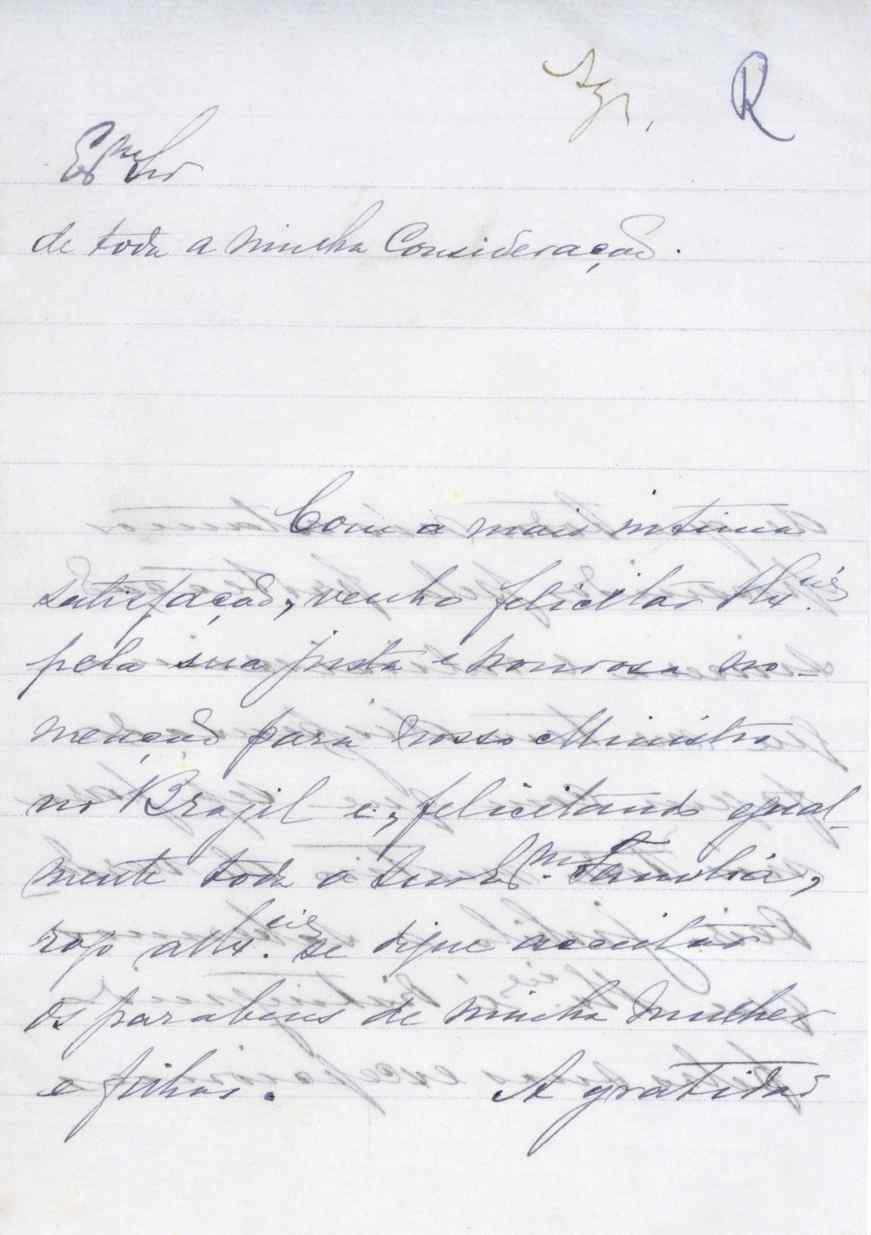 Agr. R
Exmo Snr
de toda a minha Consideração.
Com a mais intima
satisfação, venho felicitar V. Excia
pela sua justa e honrosa no-
meação para nosso Ministro
no Brazil e, felicitando egual-
mente toda a sua Exma. Familia,
rogo a V. Excia se digne acceitar
os parabens de minha mulher
e filhas. A gratidão